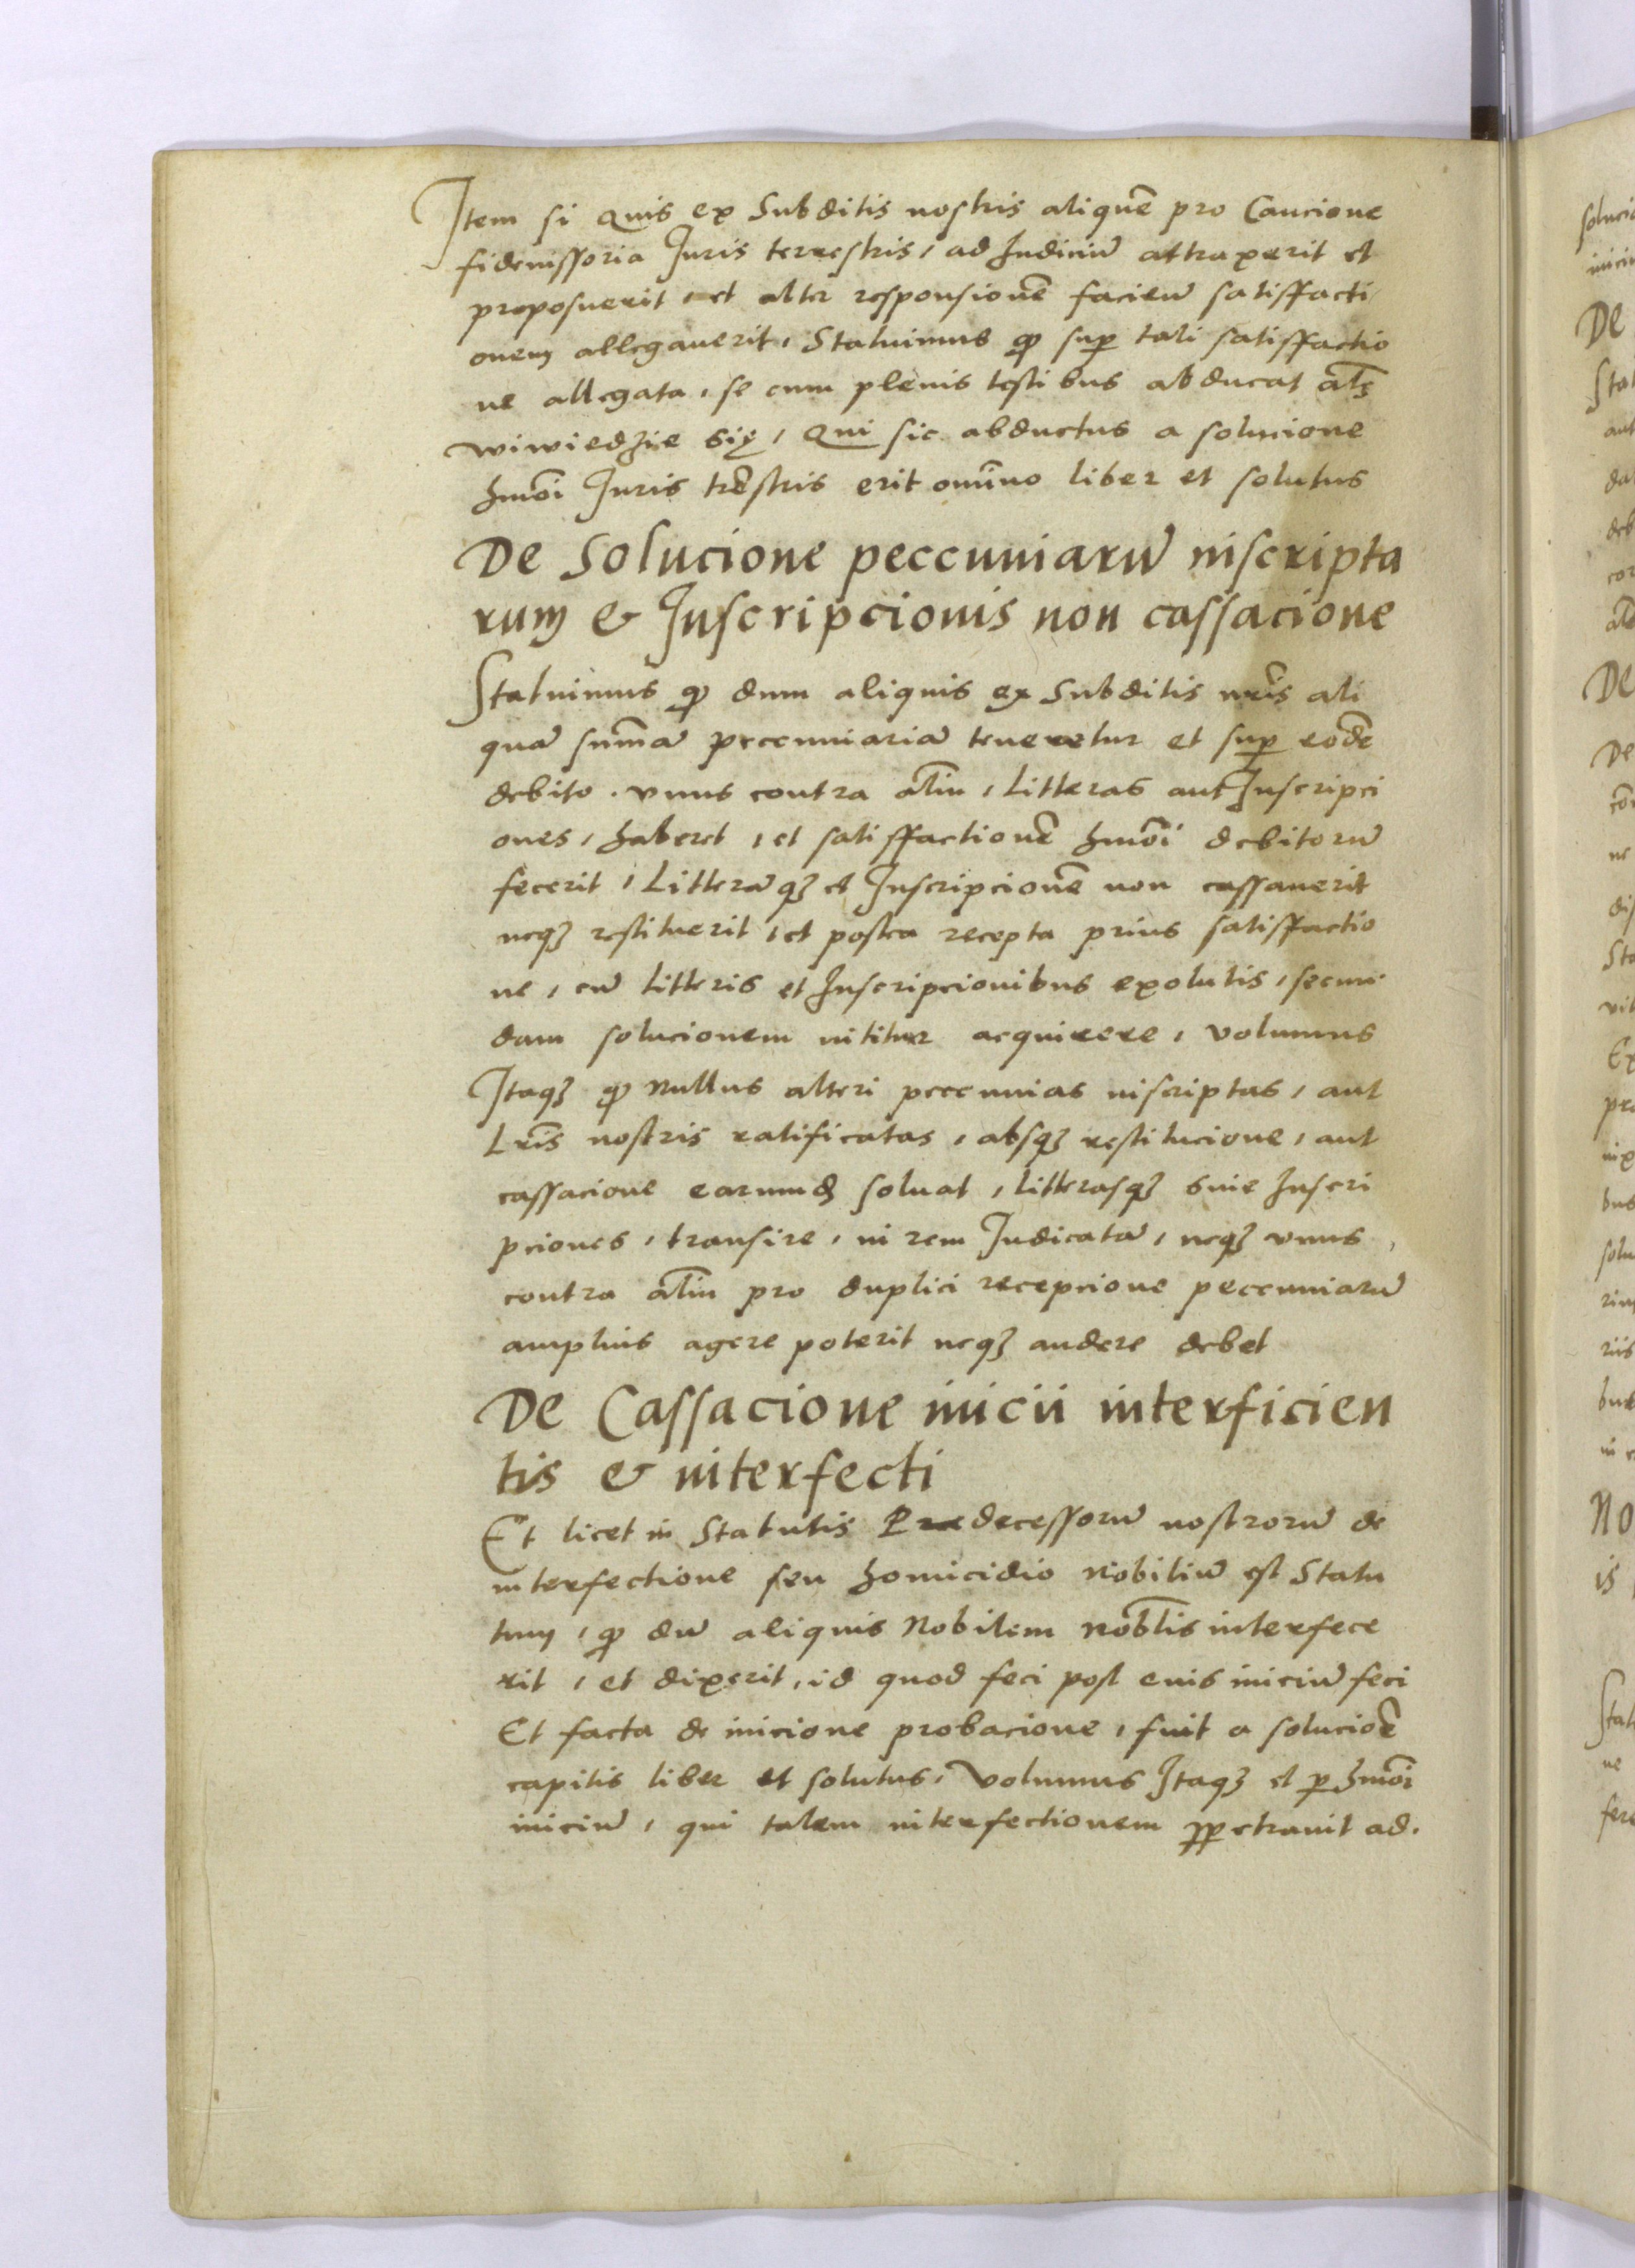 Item si quis ex Subditis nostris aliquē pro Caucione
fideiussoria Iuris terrestris, ad Iudiciū attraxerit et
proposuerit, et alter responsionē facieū satisffacti
onem allegauerit, Statuimus qp sup tali satisffactio
ne allegata, se cum plenis testibus abducat als
wiwiedzie się, Qui sic abductus a solucione
hmōi Iuris trēstris erit omīno liber et solutus
De Solucione peccuniarū inscripta
rum & Inscripcionis non cassacione
Statuimus qp dum aliquis ex Subditis nrīs ali
quā sūmā peccuniariā teneretur et sup eodē
debito. vnus contra aliū, litteras aut Inscripci
ones, haberet, et satisffactionē hmōi debitorū
fecerit, litterāqз et Inscripcionē non cassauerit
neqз restituerit, et postea recepta prius satisffactio
ne, cū litteris et Inscripcionibus exolutis, secun
dam solucionem nititur acquirere, volumus
Itaqз qp Nullus alteri peccunias inscriptas, aut
Lrīs nostris ratificatas, absqз restitucione, aut
cassacione earumd soluat, litterasqз siue Inscri
pciones, transire, in rem Iudicatā, neqз vnus
contra aliū pro duplici recepcione peccuniarū
amplius agere poterit neqз audere debet
De Cassacione inicii interficien
tis & interfecti
Et licet in Statutis Praedecessorū nostrorū de
interfectione seu homicidio Nobiliū est Statu
tum, qp dū aliquis Nobilem Nobīlis interfece
rit, et dixerit, id quod feci post euis iniciū feci
Et facta de inicione probacione, fuit a solucioē
capitis liber et solutus, Volumus Itaqз et p hmōi
iniciū, qui talem interfectionem ppetrauit ad.